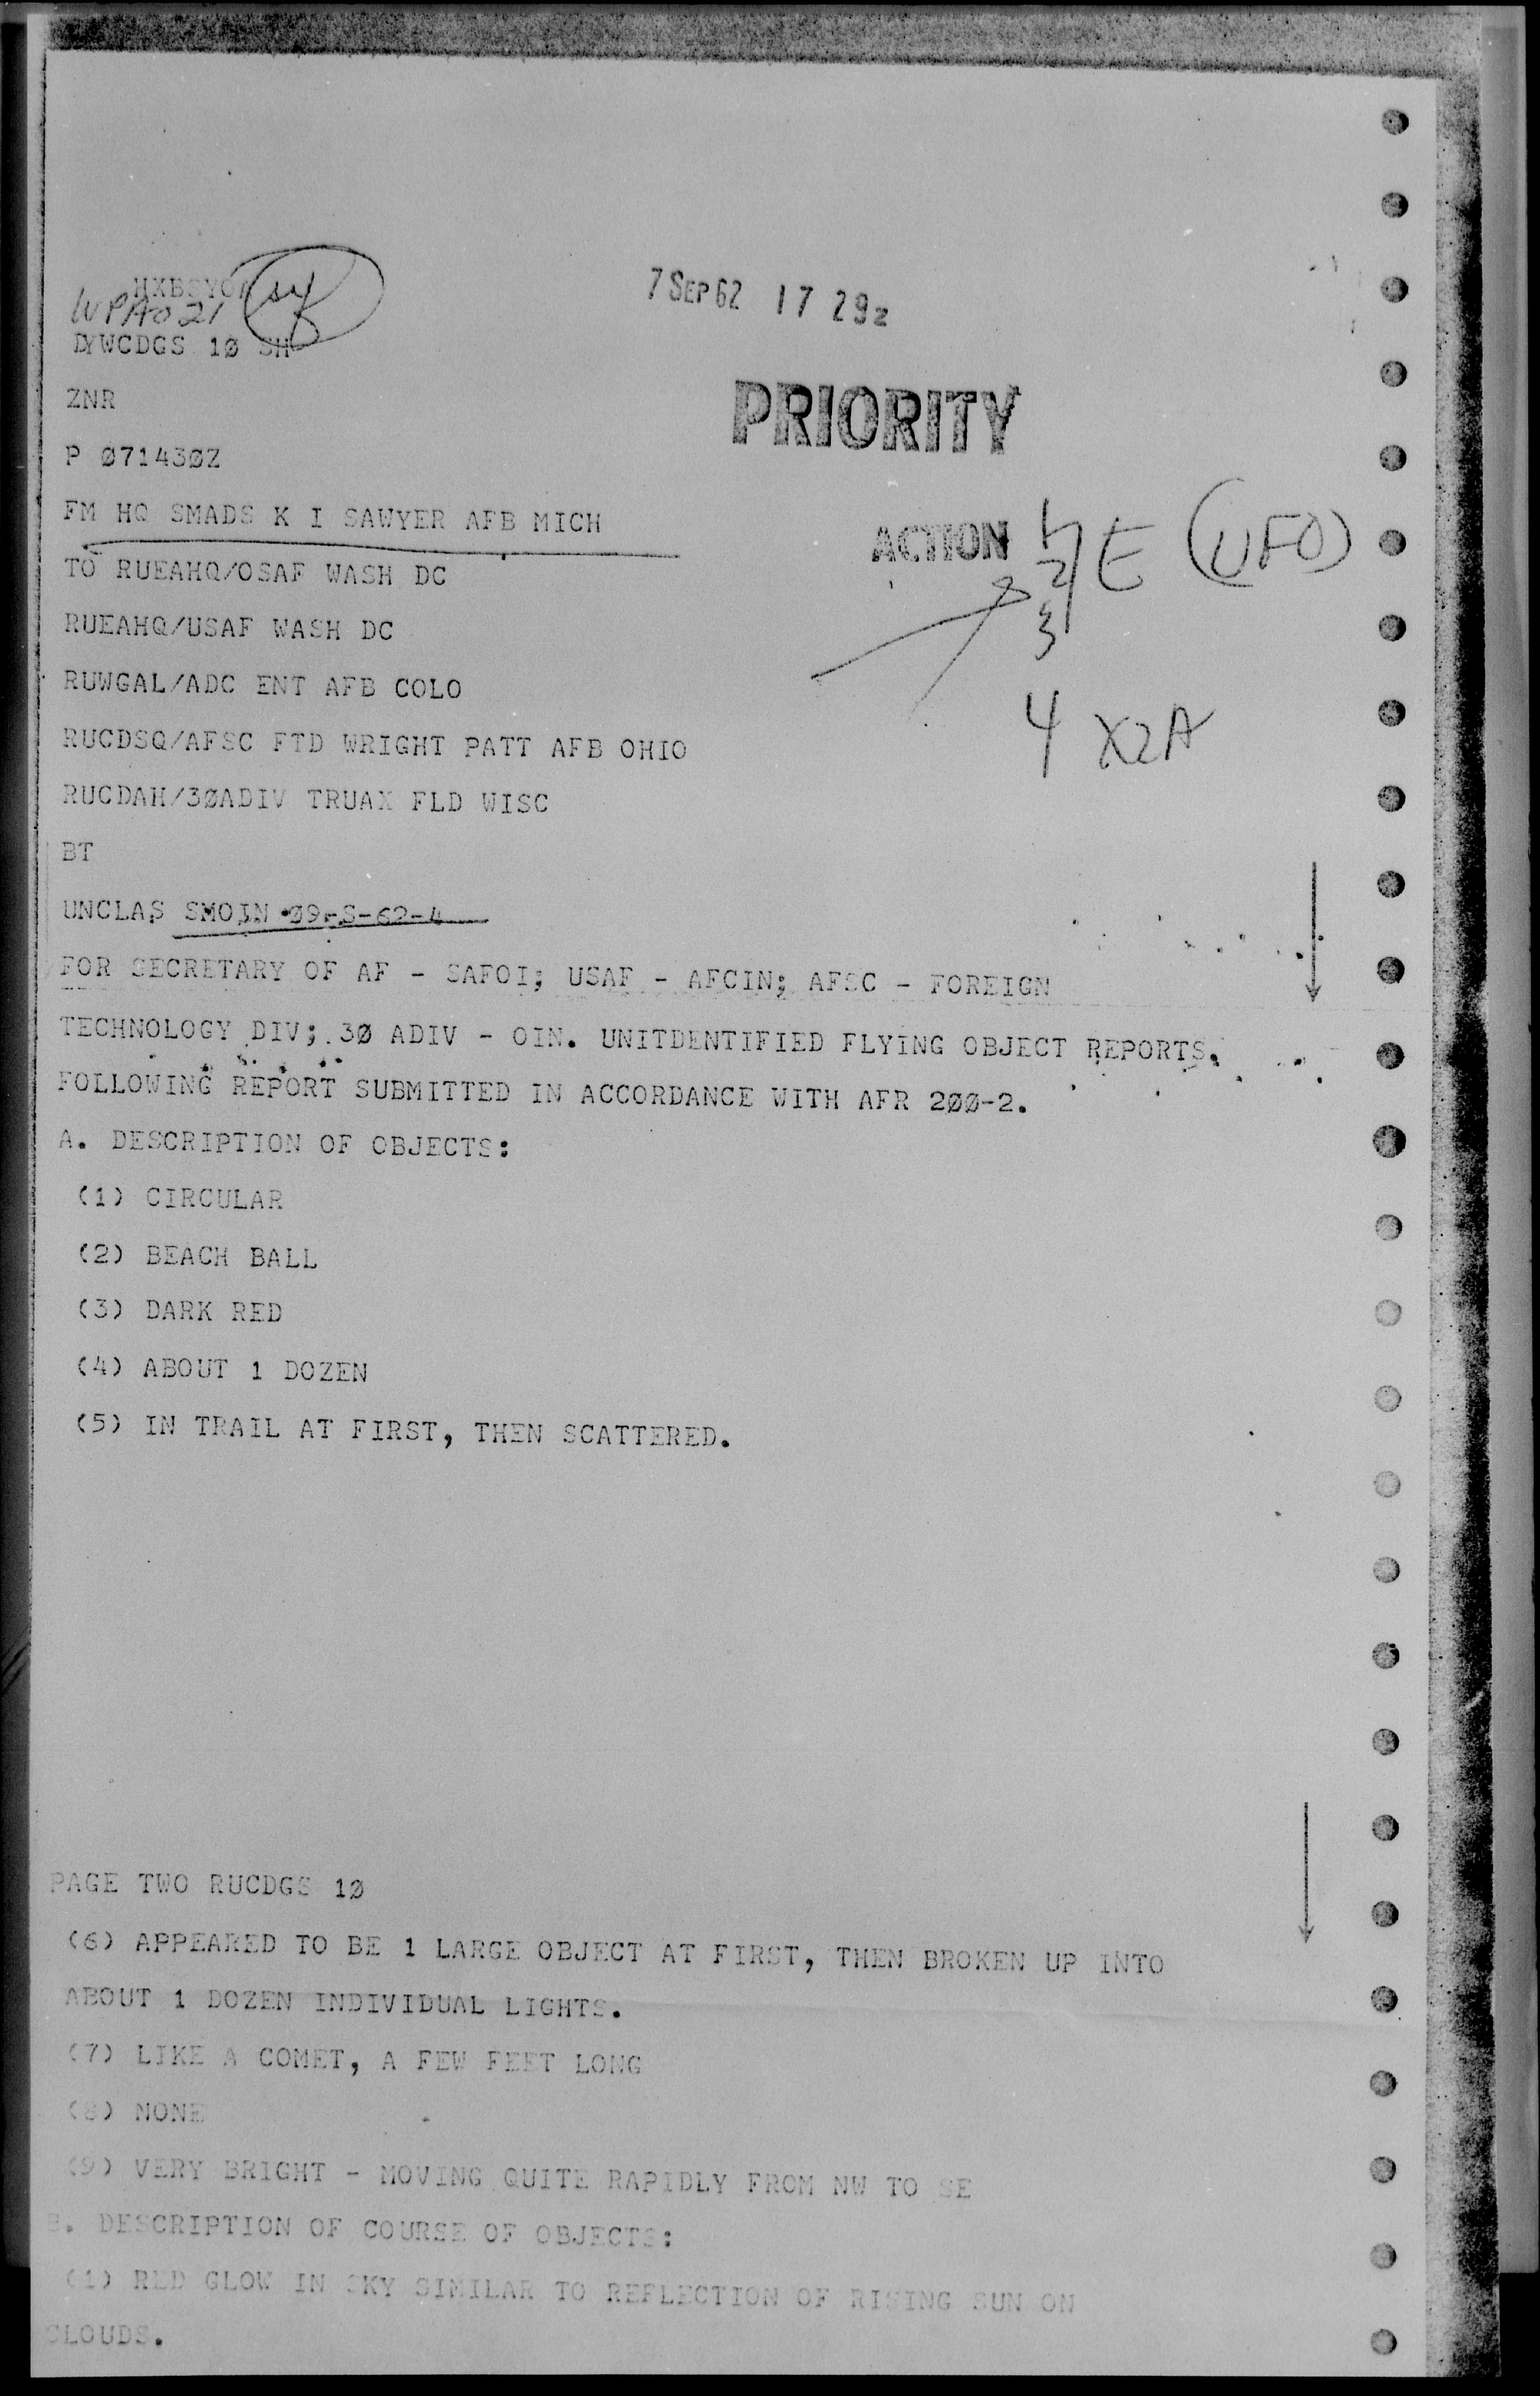 7 SEP 62 17 29z
WPA021
DYWCDGS 1Ø SH
ZNR
PRIORITY
P Ø7143ØZ
FM HQ SMADS K I SAWYER AFB MICH
ACTION 1 2 3 E (UFO)
TO RUEAHQ/OSAF WASH DC
RUEAHQ/USAF WASH DC
RUWGAL/ADC ENT AFB COLO
4 X2A
RUCDSQ/AFSC FTD WRIGHT PATT AFB OHIO
RUCDAH/3ØADIV TRUAX FLD WISC
BT
UNCLAS SMOIN Ø9-S-62-4
FOR SECRETARY OF AF - SAFOI; USAF - AFCIN; AFSC - FOREIGN
TECHNOLOGY DIV; 3Ø ADIV - OIN. UNITDENTIFIED FLYING OBJECT REPORTS.
FOLLOWING REPORT SUBMITTED IN ACCORDANCE WITH AFR 2ØØ-2.
A. DESCRIPTION OF OBJECTS:
(1) CIRCULAR
(2) BEACH BALL
(3) DARK RED
(4) ABOUT 1 DOZEN
(5) IN TRAIL AT FIRST, THEN SCATTERED.
PAGE TWO RUCDGS 1Ø
(6) APPEARED TO BE 1 LARGE OBJECT AT FIRST, THEN BROKEN UP INTO
ABOUT 1 DOZEN INDIVIDUAL LIGHTS.
(7) LIKE A COMET, A FEW FEET LONG
(8) NONE
(9) VERY BRIGHT - MOVING QUITE RAPIDLY FROM NW TO SE
B. DESCRIPTION OF COURSE OF OBJECTS:
(1) RED GLOW IN SKY SIMILAR TO REFLECTION OF RISING SUN ON
CLOUDS.